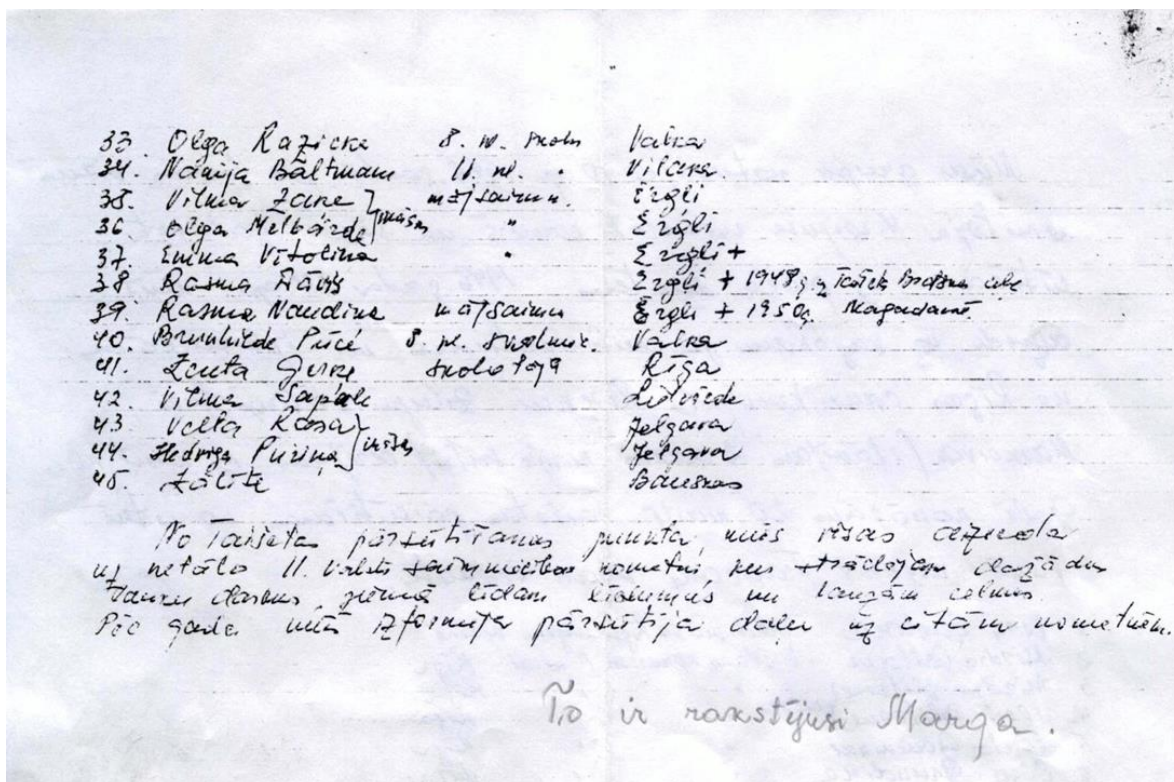 33. Olga Razicka 8. kl. skoln Valka
34. Narcija Baltmane 11. kl. " Viļaka
35. Vilma Zare mājsaimn. Ērgli
36 Olga Melbārde māsas " Ērgli
37. Emma Vītoliņa " Ērgli +
38 Rasma Ērgli + 1948. g.
39. Rasma Naudiņa mājsaimn Ērgli + 1950g. Magadanā
40. Brunhilde Pūce 8. kl. skolniec. Valka
41. Zenta skolotāja Rīga
42. Vilma Sapale
43 Velta Rasa Jelgava
44. Hedviga Puriņa māsas Jelgava
45. Zālīte Bauskas
No Taišetas pārsūtīšanas punkta, mūs visas aizveda
uz netālo 11. valsts saimniecības nometni, kur strādājām dažādus
lauku darbus, ziemā līdām līdumus un lauzām celmus.
Pēc gada mūs izformēja pārsūtīja daļu uz citām nometnēm.
To ir rakstījusi Marga.